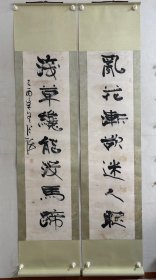 亂花漸欲迷人眼
淺草纔能沒馬蹄